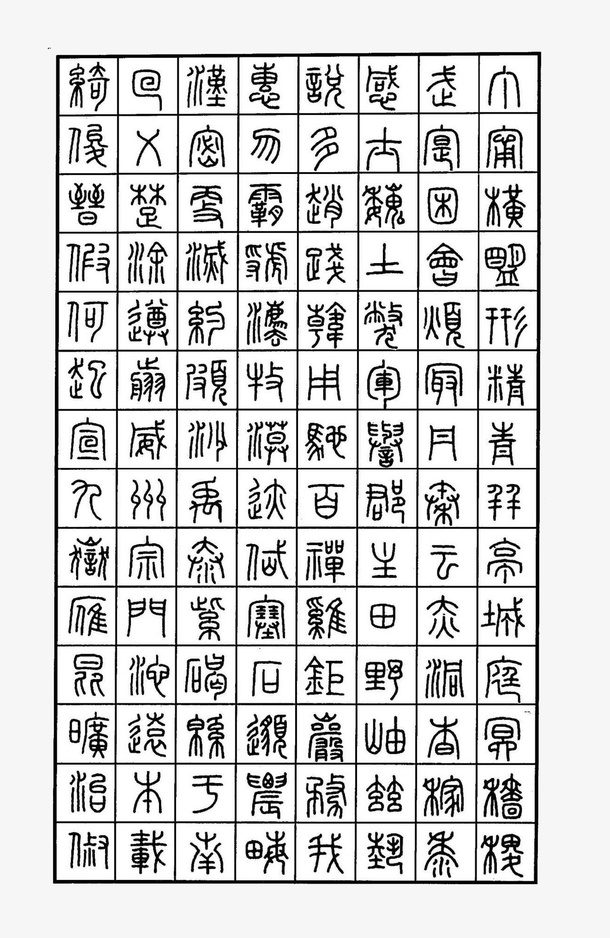 綺回漢惠說感武丁
俊乂密勿多士寔甯
晉楚更霸趙魏困橫
假涂滅虢踐土會盟
何遵約灋韓弊煩形
起翦頗牧用軍最精
宣威沙漠馳譽丹青
九州禹迹百郡秦并
嶽宗泰岱禪主云亭
雁門紫塞雞田赤城
昆池碣石鉅野洞庭
曠遠緜邈巖岫杳冥
治本于農務茲稼穡
俶載南畮我埶黍稷